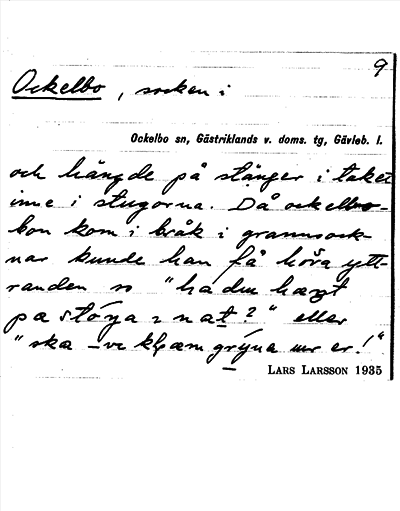 9
Ockelbo, socken i
Ockelbo sn, Gästriklands v. doms. tg, Gävleb. l.
och hängde på stänger i taket
inne i stugorna. Då ockelbo-
bon kom i bråk i grannsock-
nar kunde han få höra ytt-
randen so "ha du hæŋt
pa stóŋa i nat?" eller
"ska _vi klæm grýna ur er!"
LARS LARSSON 1935